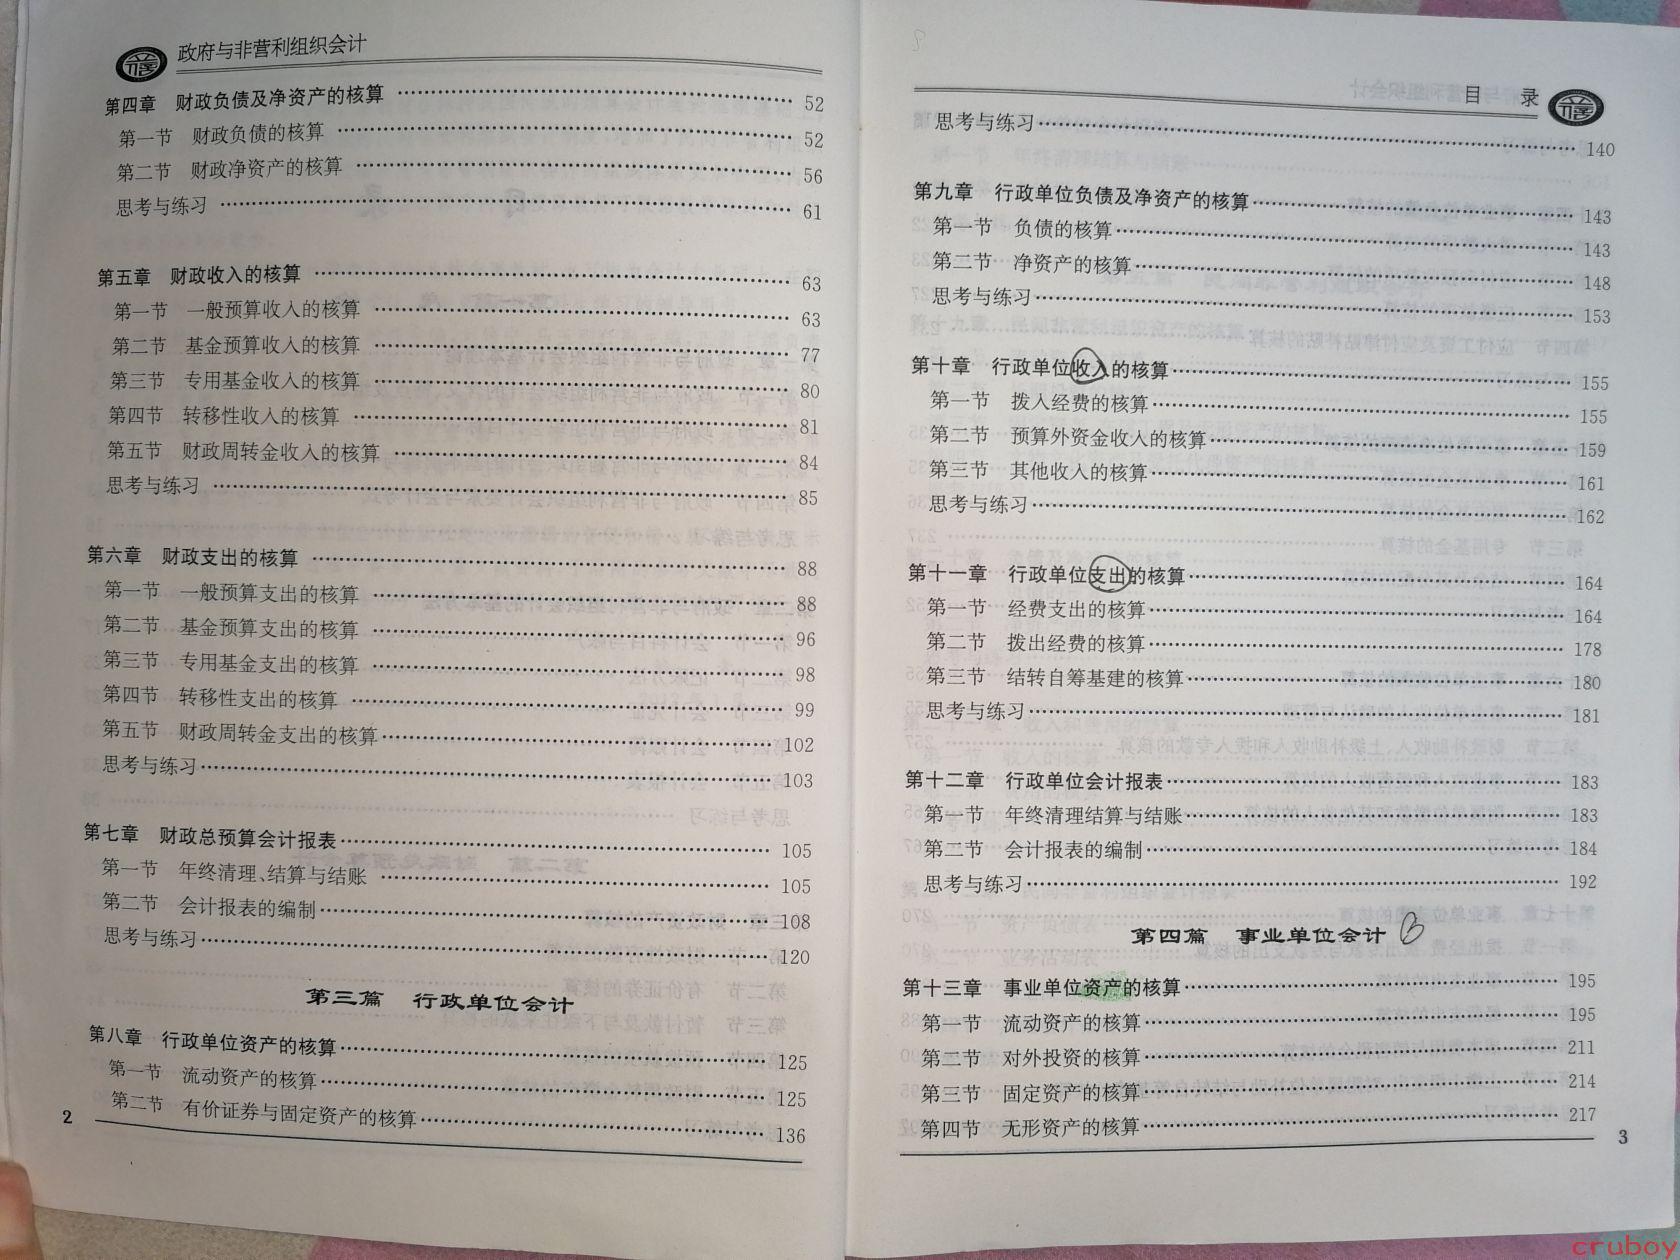 政府与非营利组织会计
第四章 财政负债及净资产的核算 …… 52
第一节 财政负债的核算 …… 52
第二节 财政净资产的核算 …… 56
思考与练习 …… 61
第五章 财政收入的核算 …… 63
第一节 一般预算收入的核算 …… 63
第二节 基金预算收入的核算 …… 77
第三节 专用基金收入的核算 …… 80
第四节 转移性收入的核算 …… 81
第五节 财政周转金收入的核算 …… 84
思考与练习 …… 85
第六章 财政支出的核算 …… 88
第一节 一般预算支出的核算 …… 88
第二节 基金预算支出的核算 …… 96
第三节 专用基金支出的核算 …… 98
第四节 转移性支出的核算 …… 99
第五节 财政周转金支出的核算 …… 102
思考与练习 …… 103
第七章 财政总预算会计报表 …… 105
第一节 年终清理、结算与结账 …… 105
第二节 会计报表的编制 …… 108
思考与练习 …… 120
第三篇 行政单位会计
第八章 行政单位资产的核算 …… 125
第一节 流动资产的核算 …… 125
第二节 有价证券与固定资产的核算 …… 136
2
目 录
思考与练习 …… 140
第九章 行政单位负债及净资产的核算 …… 143
第一节 负债的核算 …… 143
第二节 净资产的核算 …… 148
思考与练习 …… 153
第十章 行政单位收入的核算 …… 155
第一节 拨入经费的核算 …… 155
第二节 预算外资金收入的核算 …… 159
第三节 其他收入的核算 …… 161
思考与练习 …… 162
第十一章 行政单位支出的核算 …… 164
第一节 经费支出的核算 …… 164
第二节 拨出经费的核算 …… 178
第三节 结转自筹基建的核算 …… 180
思考与练习 …… 181
第十二章 行政单位会计报表 …… 183
第一节 年终清理结算与结账 …… 183
第二节 会计报表的编制 …… 184
思考与练习 …… 192
第四篇 事业单位会计
第十三章 事业单位资产的核算 …… 195
第一节 流动资产的核算 …… 195
第二节 对外投资的核算 …… 211
第三节 固定资产的核算 …… 214
第四节 无形资产的核算 …… 217
3
cruboy